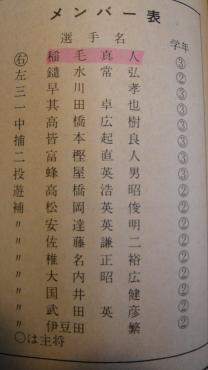 メンバー表
選手名 学年
㊨ 稲毛真人 ③
左 鑓水常弘 ②
三 早川孝 ③
一 其田卓也 ③
中 高橋広樹 ③
捕 皆本起良 ③
二 富樫直人 ③
投 蜂屋英男 ③
遊 高橋浩昭 ②
補 松岡英俊 ②
〃 安達英明 ②
〃 佐藤謙二 ②
〃 椎名正裕 ②
〃 大内昭広 ②
〃 国井健 ②
〃 武田英彦 ②
〃 伊豆田繁 ②
○は主将